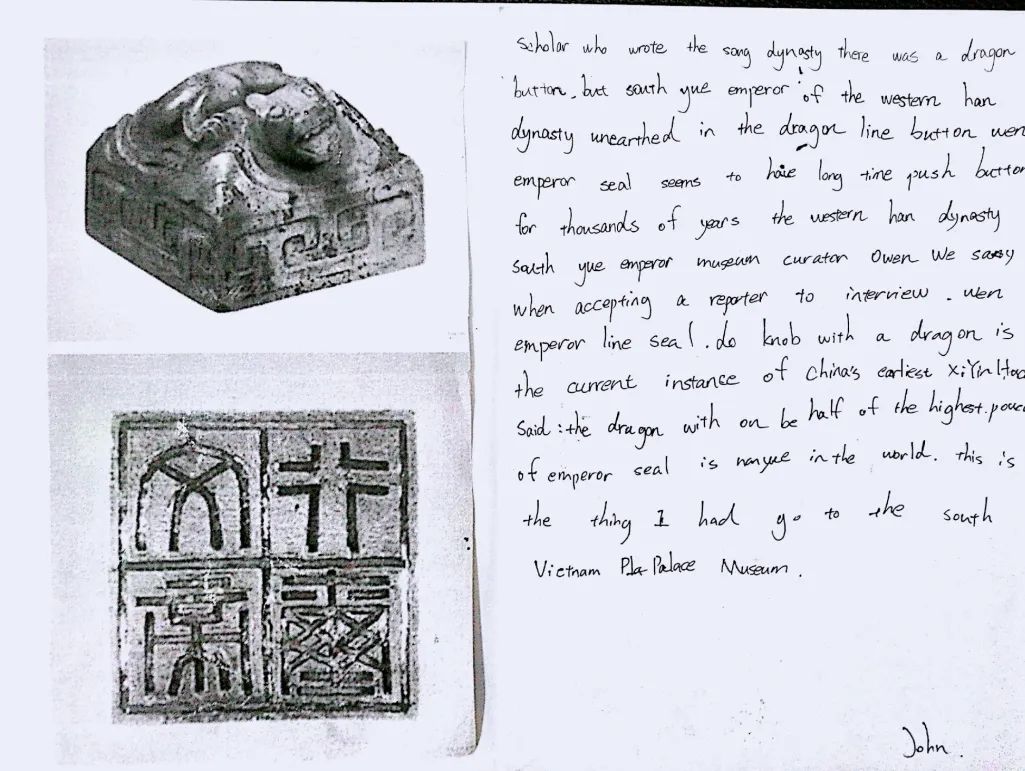 文行
帝璽
Scholar who wrote the song dynasty there was a dragon
button, but south yue emperor of the western han
dynasty unearthed in the dragon line button wen
emperor seal seems to have long time push button
for thousands of years the western han dynasty
South yue emperor museum curator Owen We say
when accepting a reporter to interview. wen
emperor line seal. do knob with a dragon is
the current instance of China's earliest XiYin
Said: the dragon with on be half of the highest
of emperor seal is nanyue in the world. this is
the thing I had go to the south
Vietnam Palace Museum.
John.